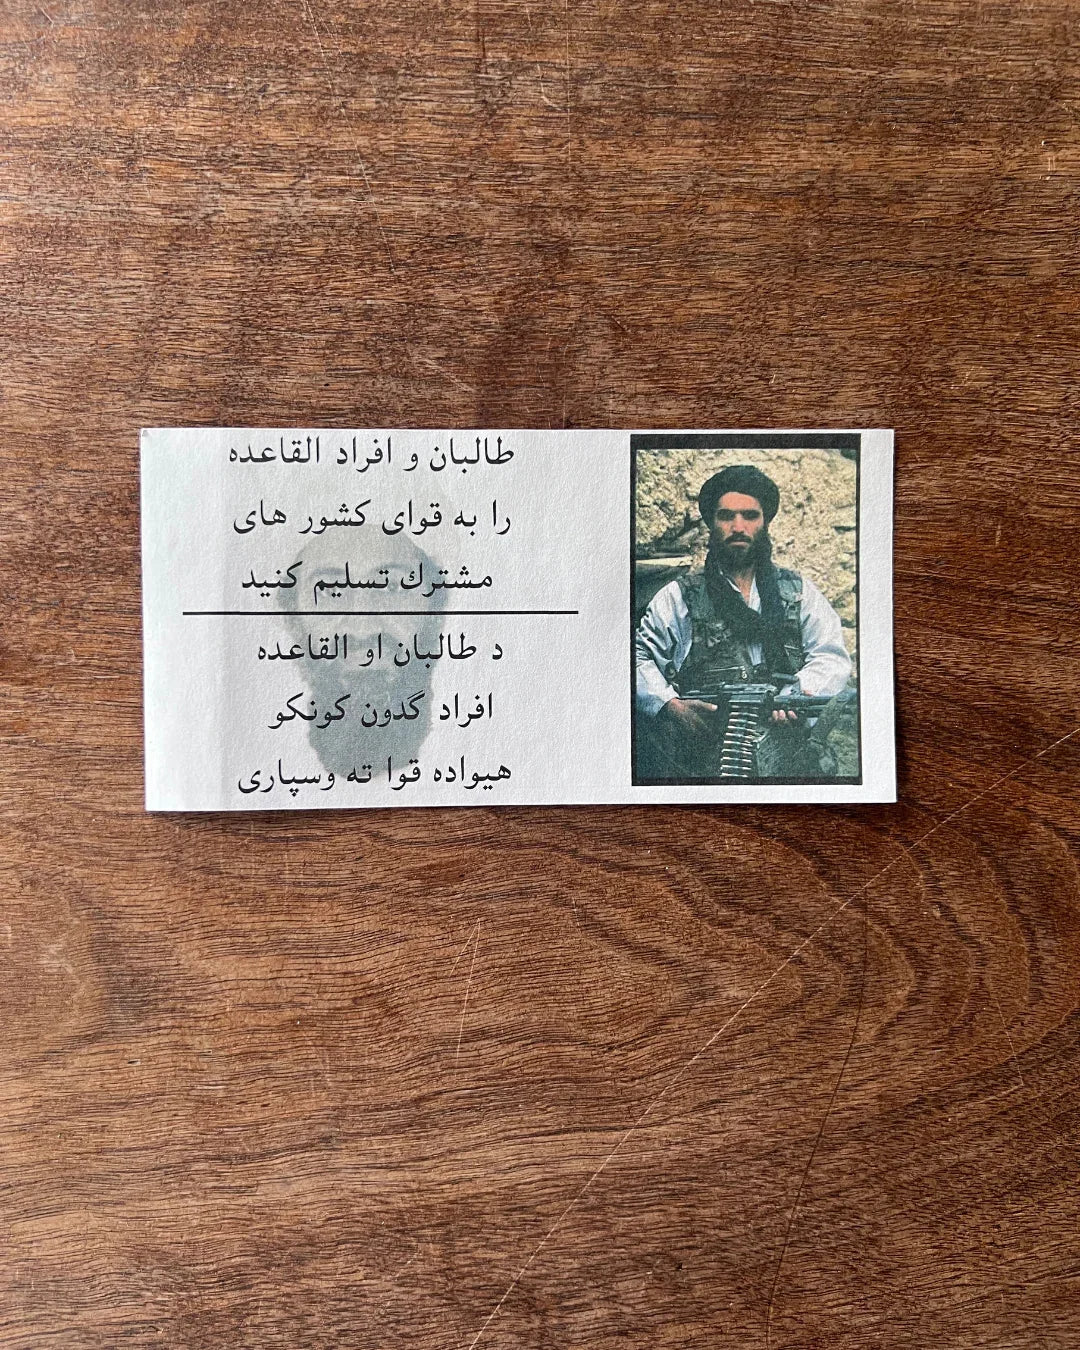 طالبان و افراد القاعده
را به قوای کشور های
مشترك تسلیم کنید
د طالبان او القاعده
افراد گدون کونکو
هیواده قوا ته وسپاری